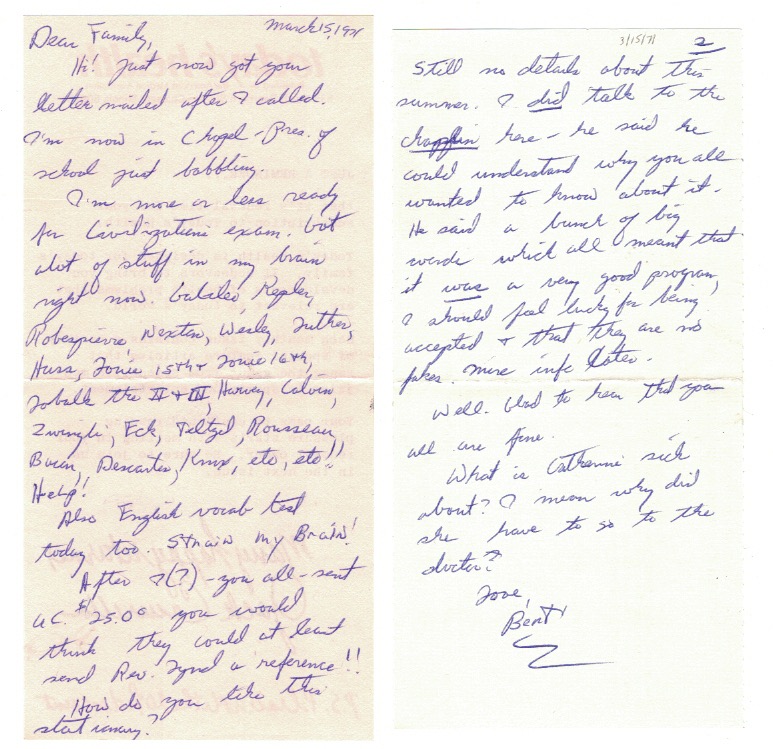 March 15, 1971
Dear Family,
Hi! Just now got your
letter mailed after I called.
I'm now in Chapel - Pres. of
school just babbling.
I'm more or less ready
for Civilizations exam. but
alot of stuff in my brain
right now. Galaleo, Kepler,
Robespierre, Newton, Wesley, Luther,
Huss, Louie 15th + Louie 16th,
the II + III, Harvey, Calvin,
Zwingli, Eck, Teltzel, Rousseau,
Bacon, Descartes, Knox, etc, etc!!
Help!
Also English vocab test
today too. Strain my Brain!
After I(?) - you all - sent
U.C. $25.00 you would
think they could at least
send Rev. Lynd a reference!!
How do you like this
stationary?
3/15/71
2
Still no details about this
summer. I did talk to the
chaplin here - he said he
could understand why you all
wanted to know about it.
He said a bunch of big
words which all meant that
it was a very good program,
I should feel lucky for being
accepted + that they are no
fakes. More info later.
Well. Glad to hear that you
all are fine.
What is Catherine sick
about? I mean why did
she have to go to the
doctor?
Love,
Bent